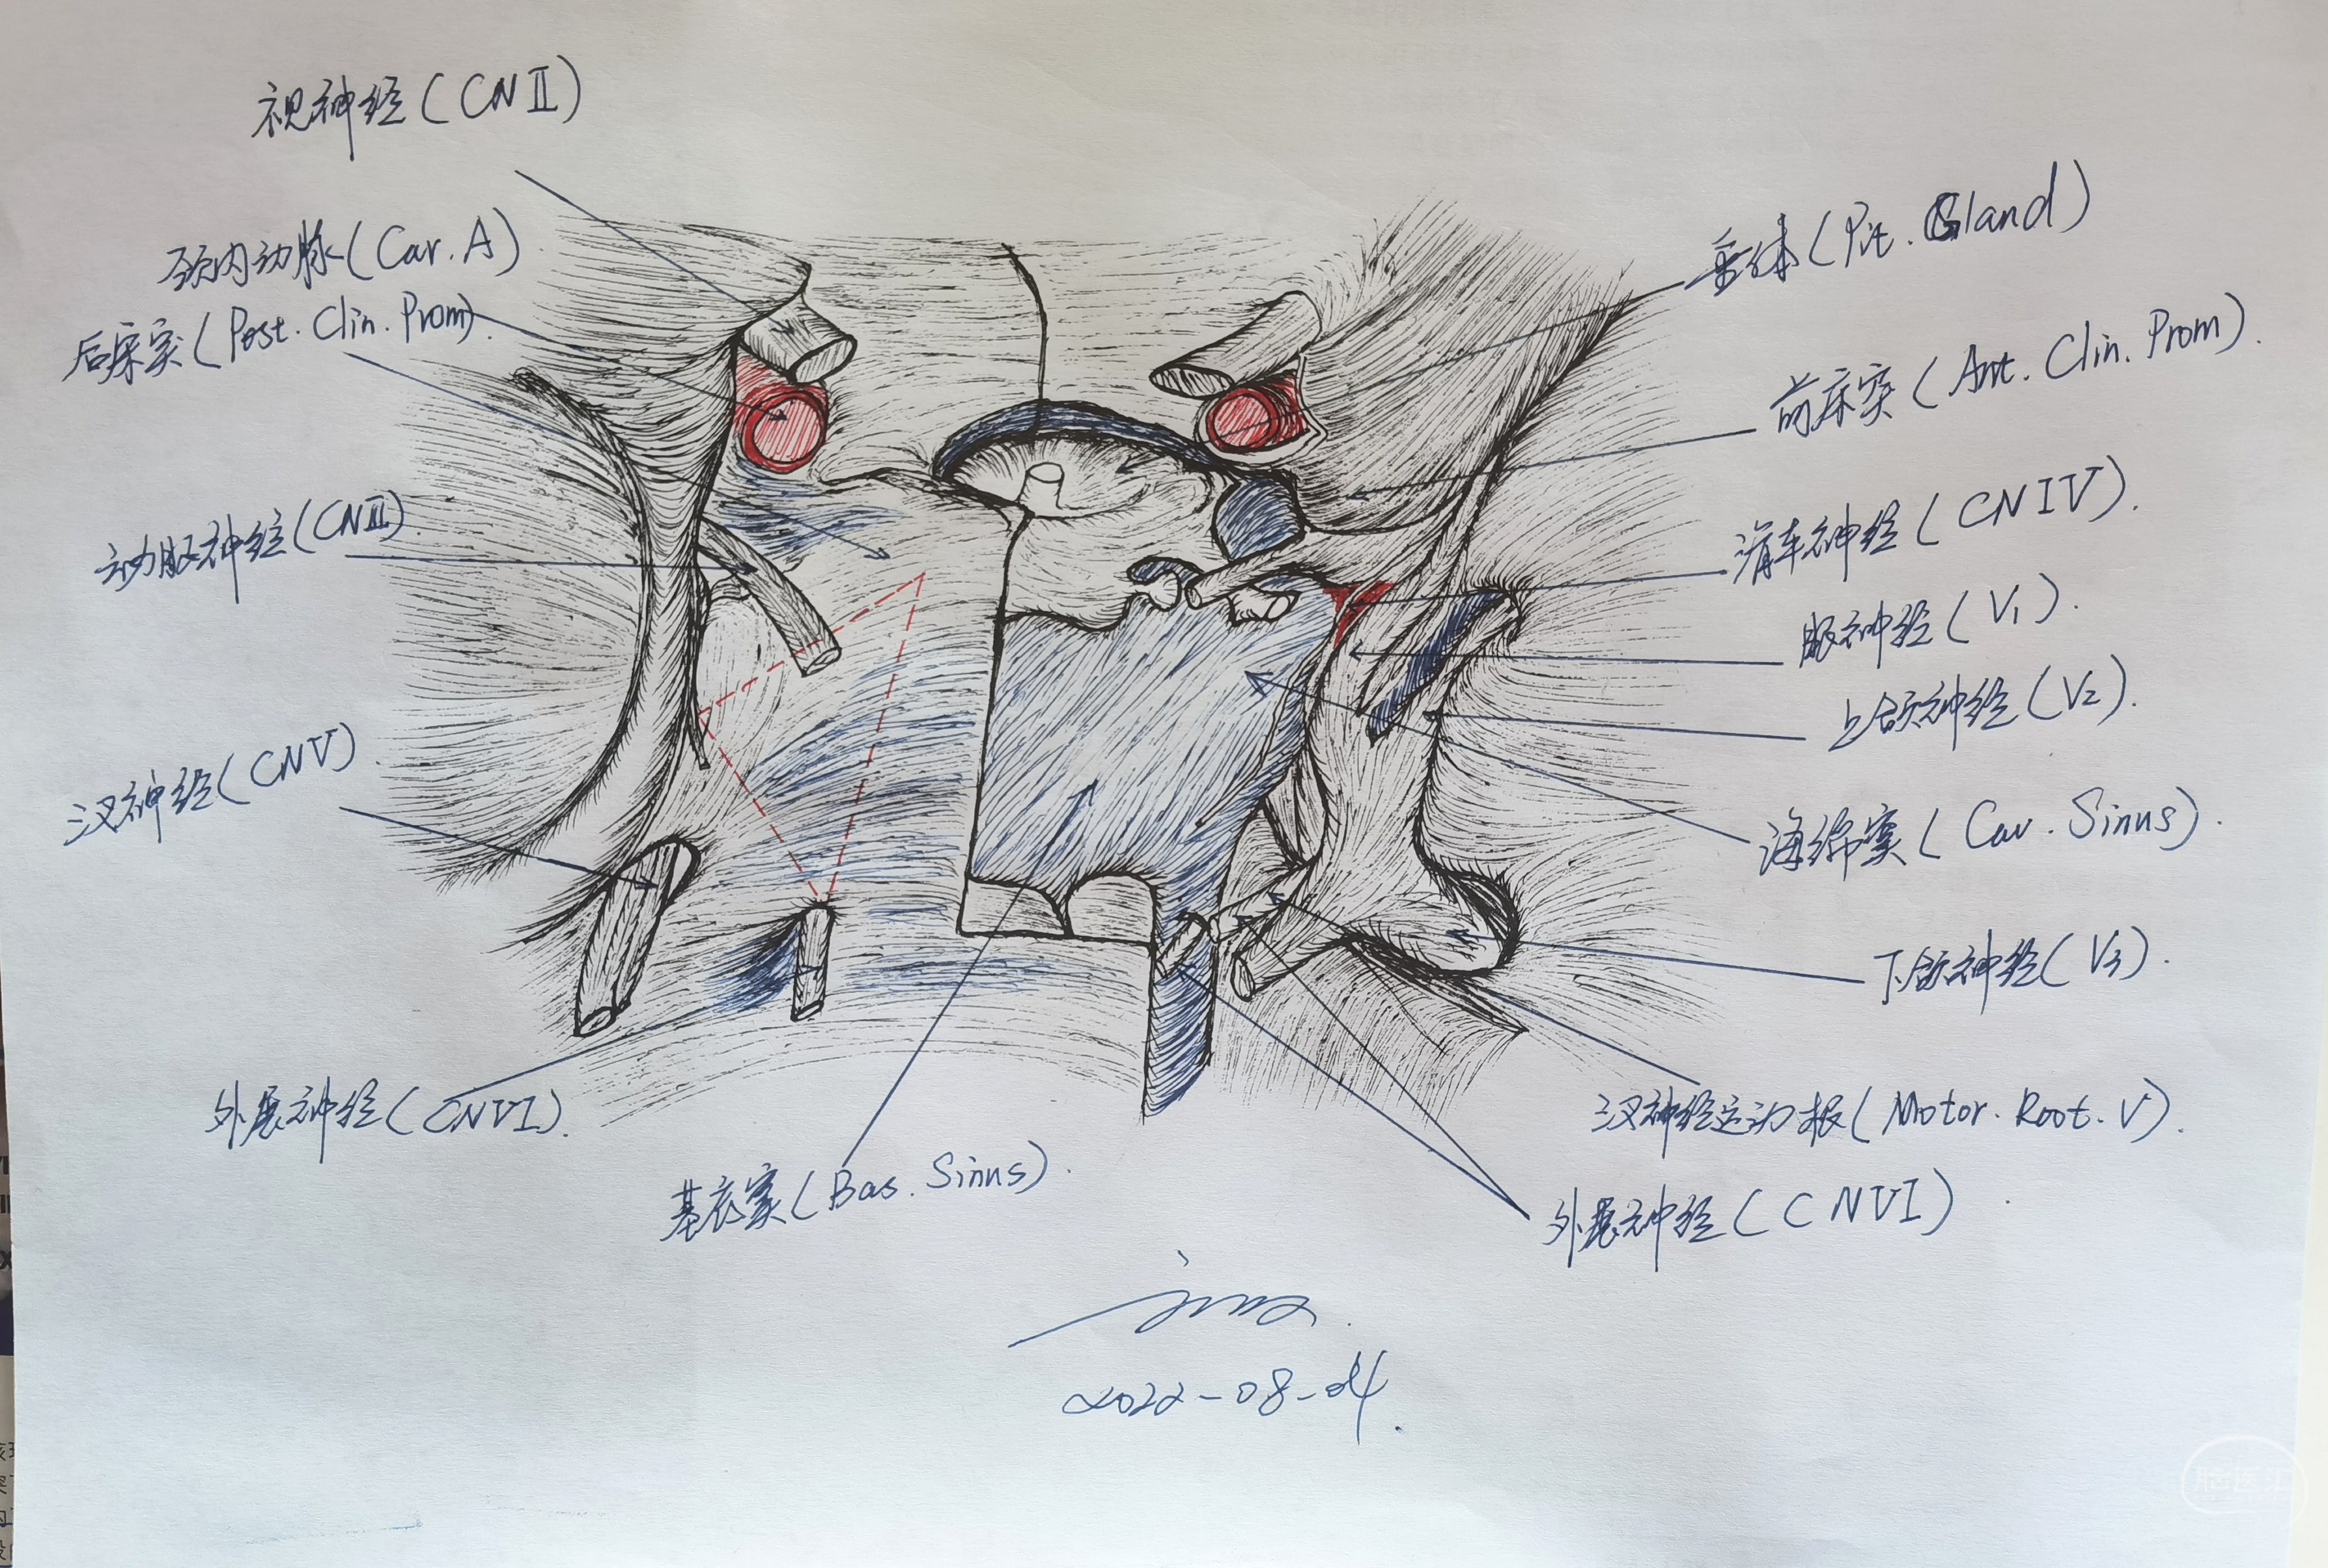 视神经(CNⅡ)
颈内动脉(Car.A)
后床突(Post.Clin.Prom).
动眼神经(CNⅢ).
三叉神经(CNV).
外展神经(CNVI).
基底窦(Bas.Sinus).
垂体(Pit.Gland)
前床突(Ant.Clin.Prom).
滑车神经(CNIV).
眼神经(V₁).
上颌神经(V₂).
海绵窦(Cav.Sinus).
下颌神经(V₃).
三叉神经运动根(Motor.Root.V).
外展神经(CNVI)
2022-08-04.
脑医汇